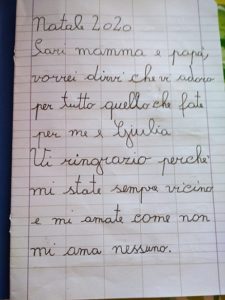 Natale 2020
Cari mamma e papà,
vorrei dirvi che vi adoro
per tutto quello che fate
per me e Giulia
Vi ringrazio perché
mi state sempre vicino
e mi amate come non
mi ama nessuno.